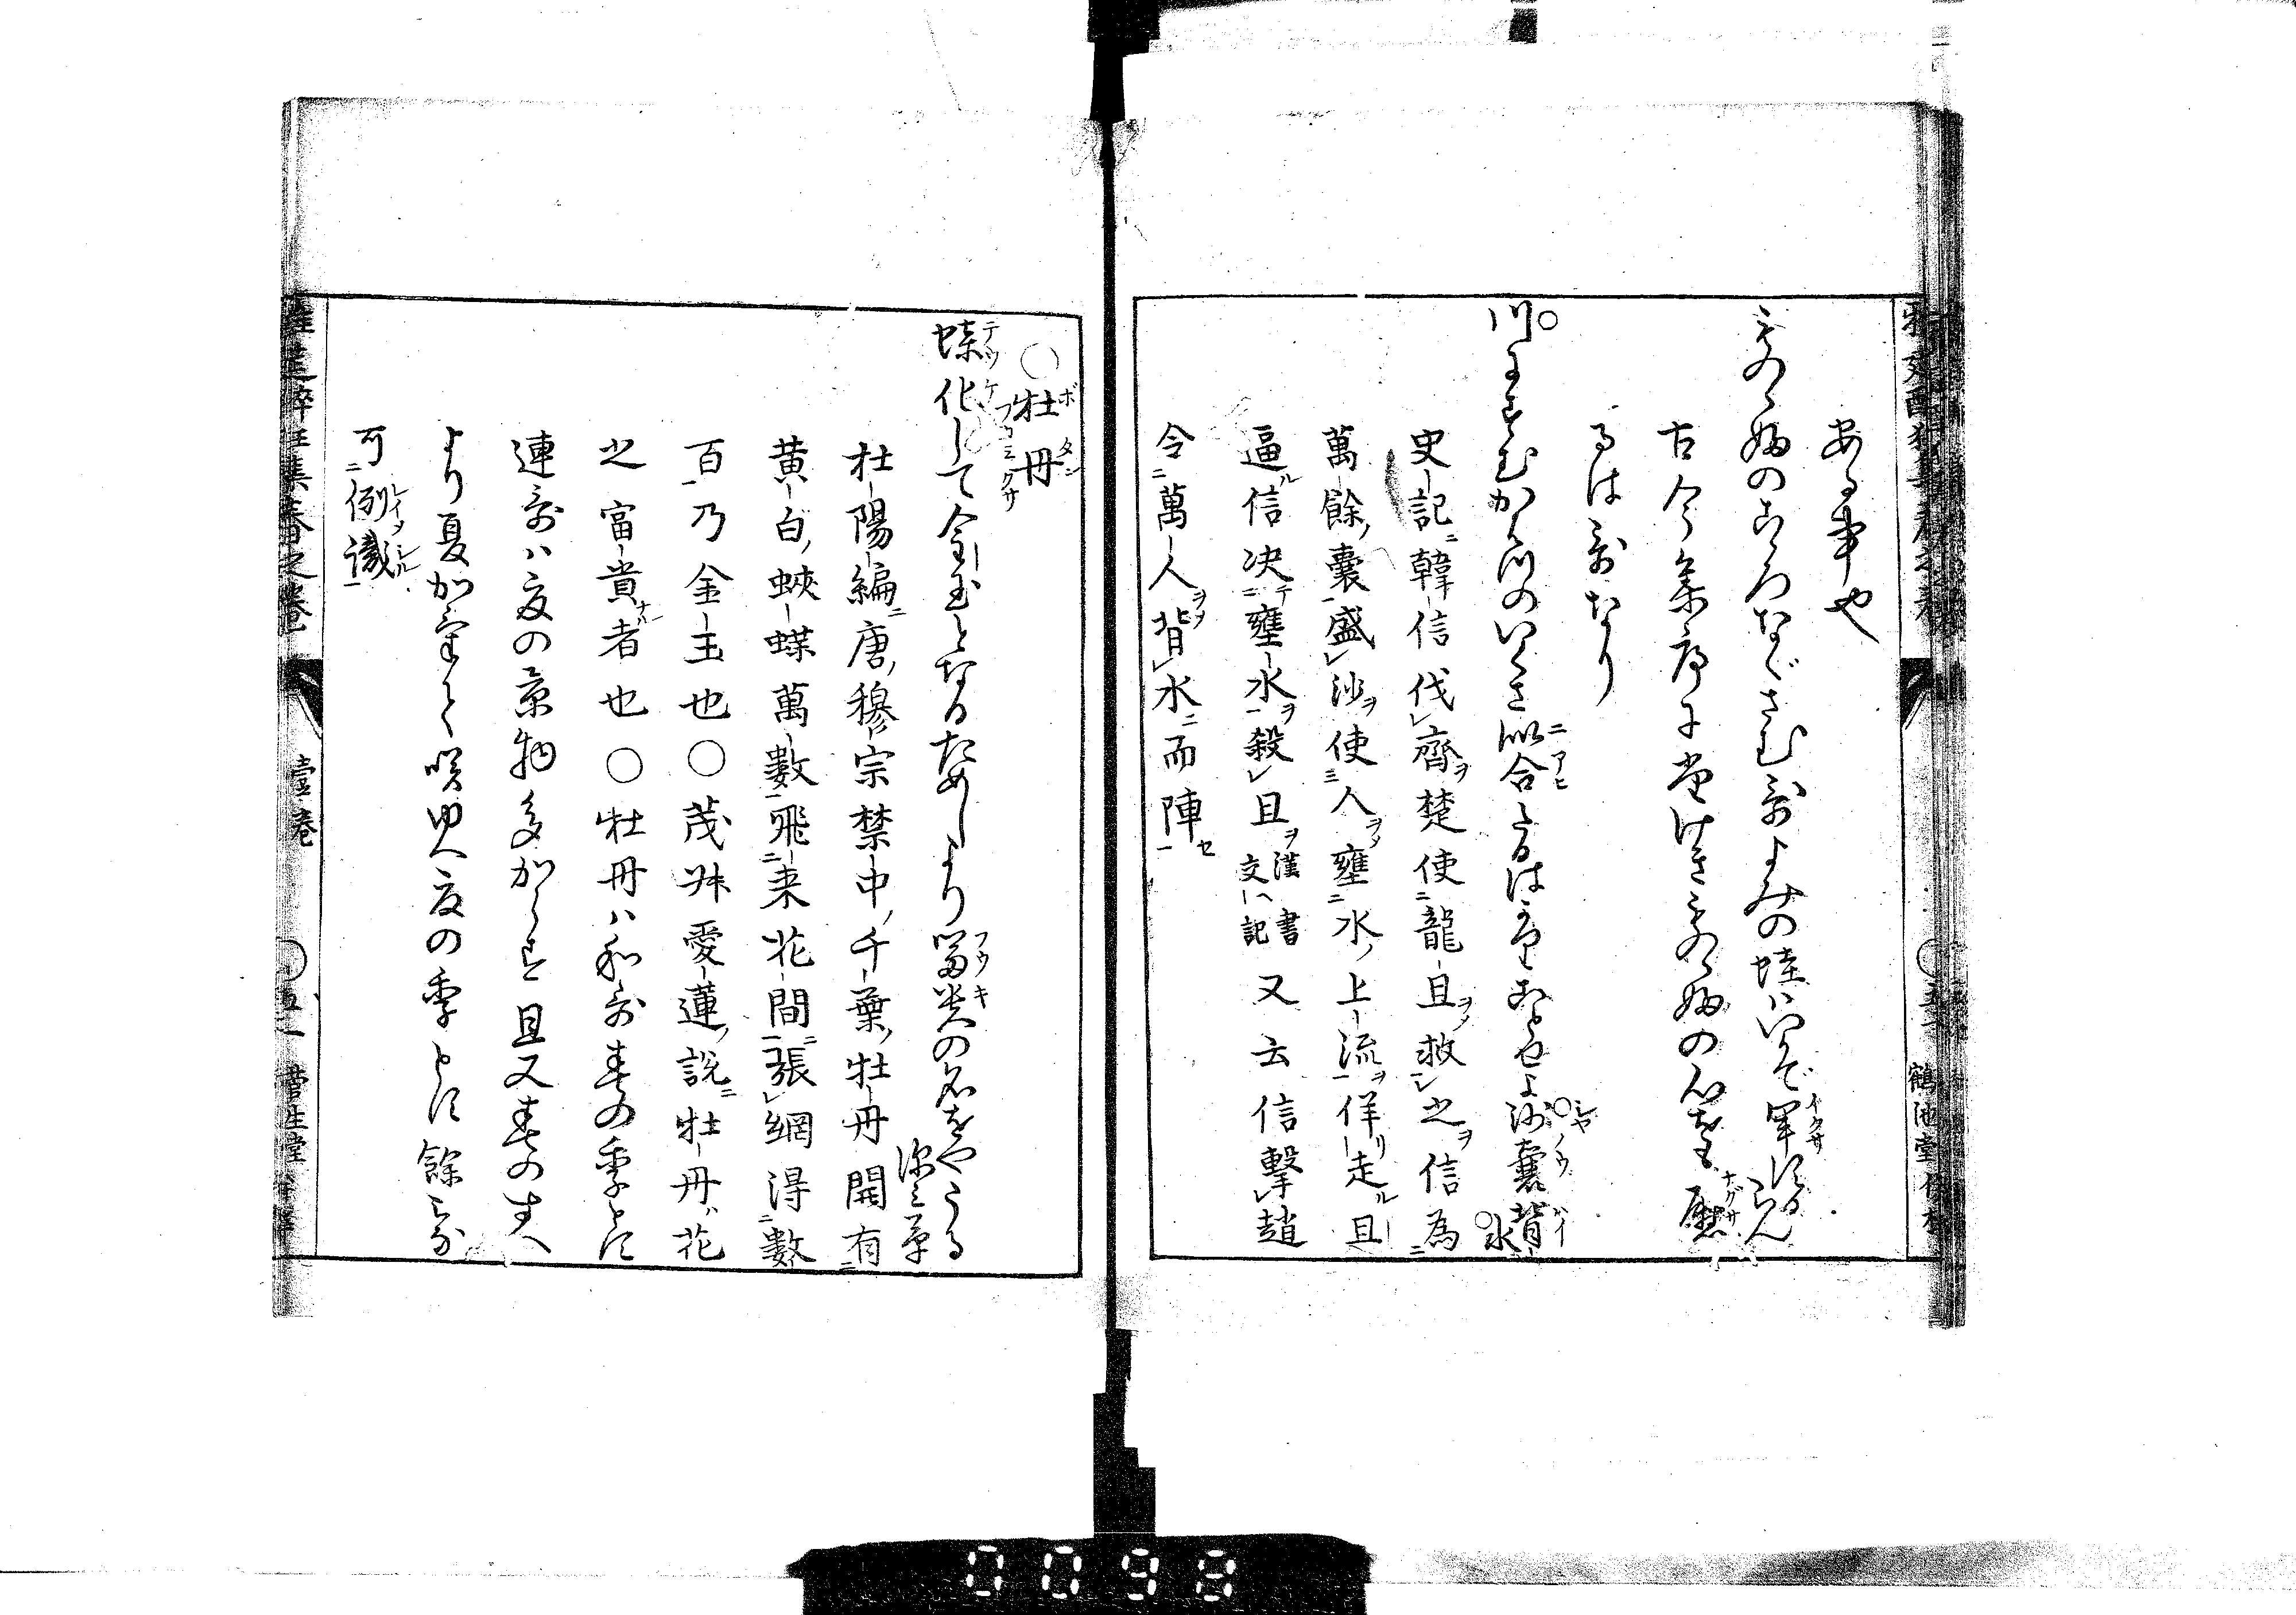 ある事也
ものゝふのこゝろなぐさむ哥よみの蛙ハいかで軍する
らん
古今集序にたけきものゝふの心をも慰
るは哥なり
川にすむかはづのいくさ似合たるは
沙嚢背
水
史記韓信伐齊楚使龍且救之信為
萬餘嚢盛沙使人壅水上流佯走且
逼信决壅水殺且漢書文ハ記又云信擊趙
令萬人背水而陣
○牡丹
蝶化して金玉となるためしより冨貴の名をやこる
深み草
杜陽編唐穆宗禁中千葉牡丹開有
黄白蛺蝶萬數飛来花間張網得數
百乃金玉也○茂叔愛蓮説牡丹花
之富貴者也○牡丹ハ和哥春の季とす
連哥ハ夏の景物多からす且又春の末
より夏かけて咲ゆへ夏の季とす餘ハ
可例識
壹巻
鶴池堂